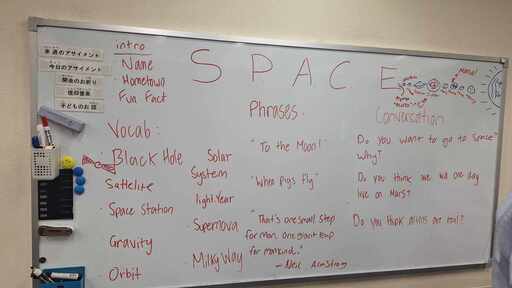 来週のアサイメント
今日のアサイメント
開会のお祈り
信仰箇条
子どものお話
intro
Name
· Hometown
Fun Fact
SPACE
Vocab:
· Black Hole
Satelite
· Space Station
· Gravity
· Orbit
Solar
System
· lightYear
· Supernova
· Milky Way
Phrases:
"To the Moon!"
"When Pigs Fly"
"That's one small step
for man, one giant leap
for mankind."
- Neil Armstrong
Conversation
Do you want to go to space?
Why?
Do you think we will one day
live on Mars?
Do you think aliens are real?